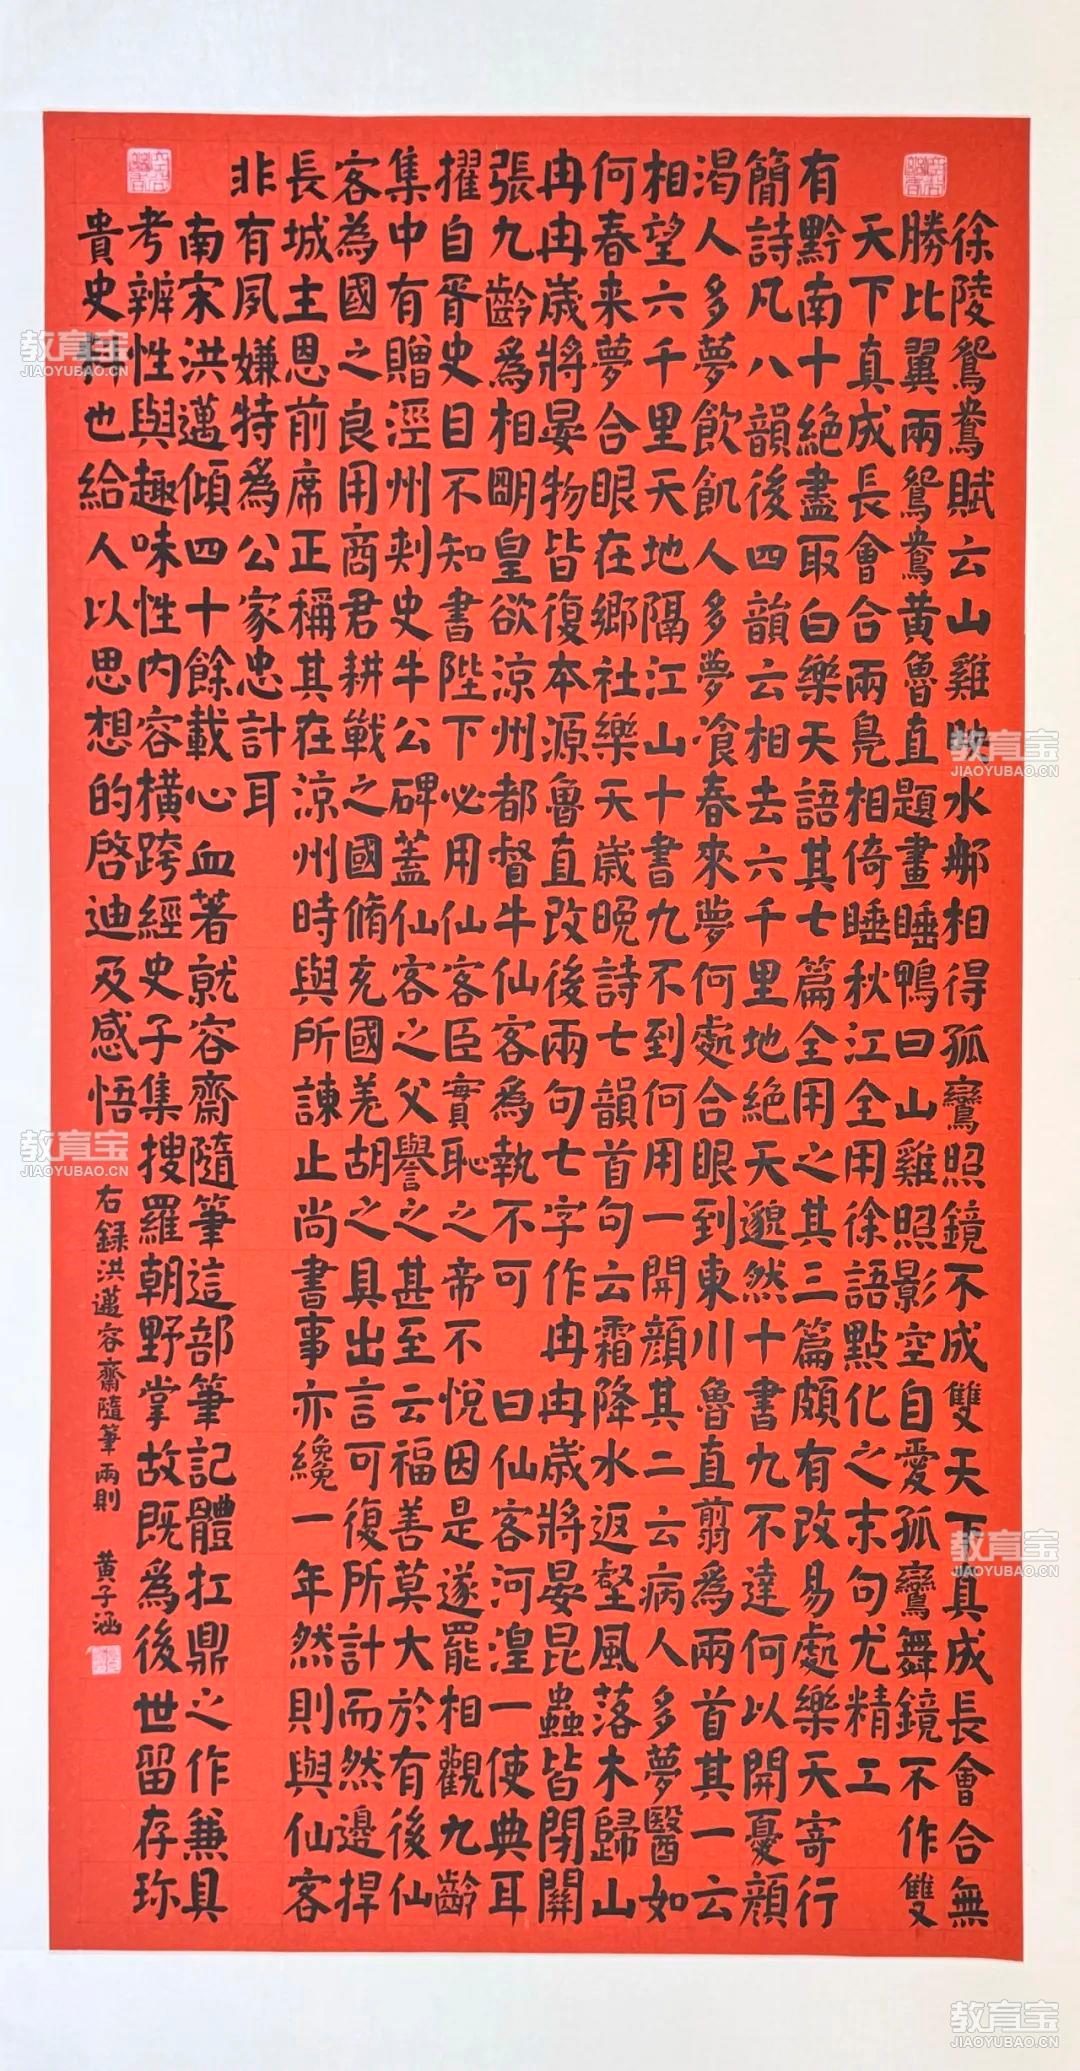 徐陵鴛鴦賦云山雞映水那相得孤鸞照鏡不成雙天下真成長會合無
勝比翼兩鴛鴦黄魯直題畫睡鴨曰山雞照影空自愛孤鸞舞鏡不作雙
天下真成長會合兩鳧相倚睡秋江全用徐語點化之末句尤精工
有黔南十絶盡取白樂天語其七篇全用之其三篇頗有改易處樂天寄行
簡詩凡八韻後四韻云相去六千里地絶天邈然十書九不達何以開憂顏
渴人多夢飲飢人多夢飡春來夢何處合眼到東川魯直翦為兩首其一云
相望六千里天地隔江山十書九不到何用一開顏其二云病人多夢醫如
何春来夢合眼在鄉社樂天歲晚詩七韻首句云霜降水返壑風落木歸山
冉冉歲將晏物皆復本源魯直改後兩句七字作冉冉歲將晏昆蟲皆閉關
張九齡為相明皇欲涼州都督牛仙客為執不可 曰仙客河湟一使典耳
擢自胥史目不知書陛下必用仙客臣實恥之帝不悅因是遂罷相觀九齡
集中有贈涇州刺史牛公碑蓋仙客之父譽之甚至云福善莫大於有後仙
客為國之良用商君耕戰之國脩充國羌胡之具出言可復所計而然邊捍
長城主恩前席正稱其在涼州時與所諫止尚書事亦纔一年然則與仙客
非有夙嫌特為公家忠計耳
南宋洪邁傾四十餘載心血著就容齋隨筆這部筆記體扛鼎之作兼具
考辨性與趣味性内容橫跨經史子集搜羅朝野掌故既為後世留存珍
貴史料也給人以思想的啓迪及感悟
右録洪邁容齋隨筆兩則 黄子涵
教育宝
JIAOYUBAO.CN
教育宝
JIAOYUBAO.CN
教育宝
JIAOYUBAO.CN
教育宝
JIAOYUBAO.CN
教育宝
JIAOYUBAO.CN